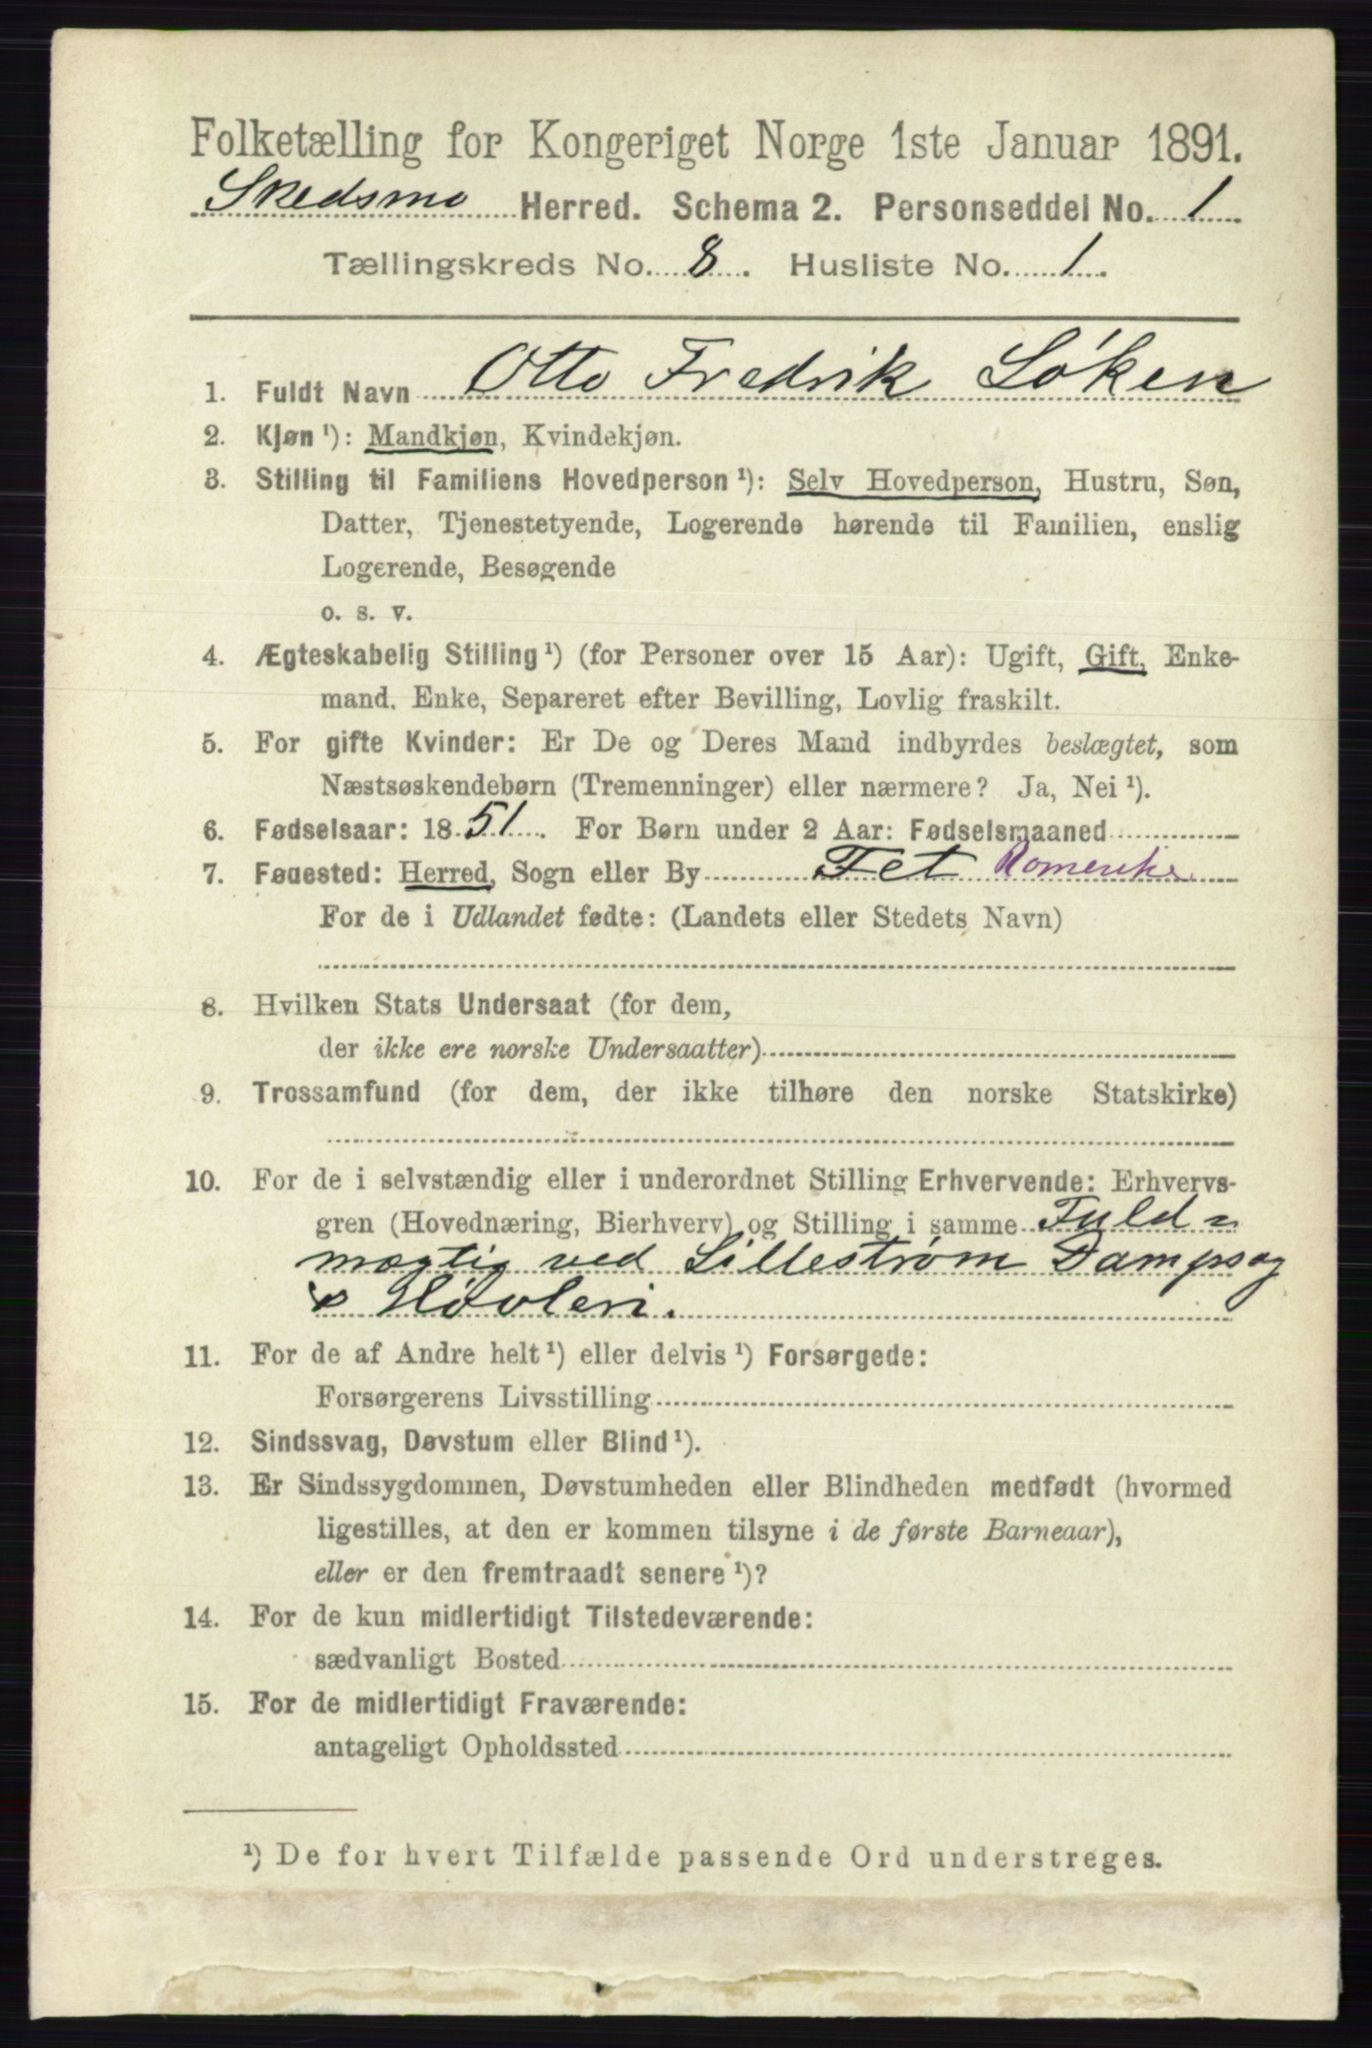 Folketælling for Kongeriget Norge 1ste Januar 1891.
Skedsmo Herred. Schema 2. Personseddel No. 1
Tællingskreds No. 8. Husliste No. 1.
1. Fuldt Navn Otto Fredrik Løken
2. Kjøn ¹): Mandkjøn, Kvindekjøn.
3. Stilling til Familiens Hovedperson ¹): Selv Hovedperson, Hustru, Søn,
Datter, Tjenestetyende, Logerende hørende til Familien, enslig
Logerende, Besøgende
o. s. v.
4. Ægteskabelig Stilling ¹) (for Personer over 15 Aar): Ugift, Gift, Enke-
mand, Enke, Separeret efter Bevilling, Lovlig fraskilt.
5. For gifte Kvinder: Er De og Deres Mand indbyrdes beslægtet, som
Næstsøskendebørn (Tremenninger) eller nærmere? Ja, Nei ¹).
6. Fødselsaar: 1851. For Børn under 2 Aar: Fødselsmaaned
7. Fødested: Herred, Sogn eller By Fet Romerike
For de i Udlandet fødte: (Landets eller Stedets Navn)
8. Hvilken Stats Undersaat (for dem,
der ikke ere norske Undersaatter)
9. Trossamfund (for dem, der ikke tilhøre den norske Statskirke)
10. For de i selvstændig eller i underordnet Stilling Erhvervende: Erhvervs-
gren (Hovednæring, Bierhverv) og Stilling i samme Fuld=
mægtig ved Lillestrøm Dampsag
& Høvleri.
11. For de af Andre helt ¹) eller delvis ¹) Forsørgede:
Forsørgerens Livsstilling
12. Sindssvag, Døvstum eller Blind ¹).
13. Er Sindssygdommen, Døvstumheden eller Blindheden medfødt (hvormed
ligestilles, at den er kommen tilsyne i de første Barneaar),
eller er den fremtraadt senere ¹)?
14. For de kun midlertidigt Tilstedeværende:
sædvanligt Bosted
15. For de midlertidigt Fraværende:
antageligt Opholdssted
¹) De for hvert Tilfælde passende Ord understreges.